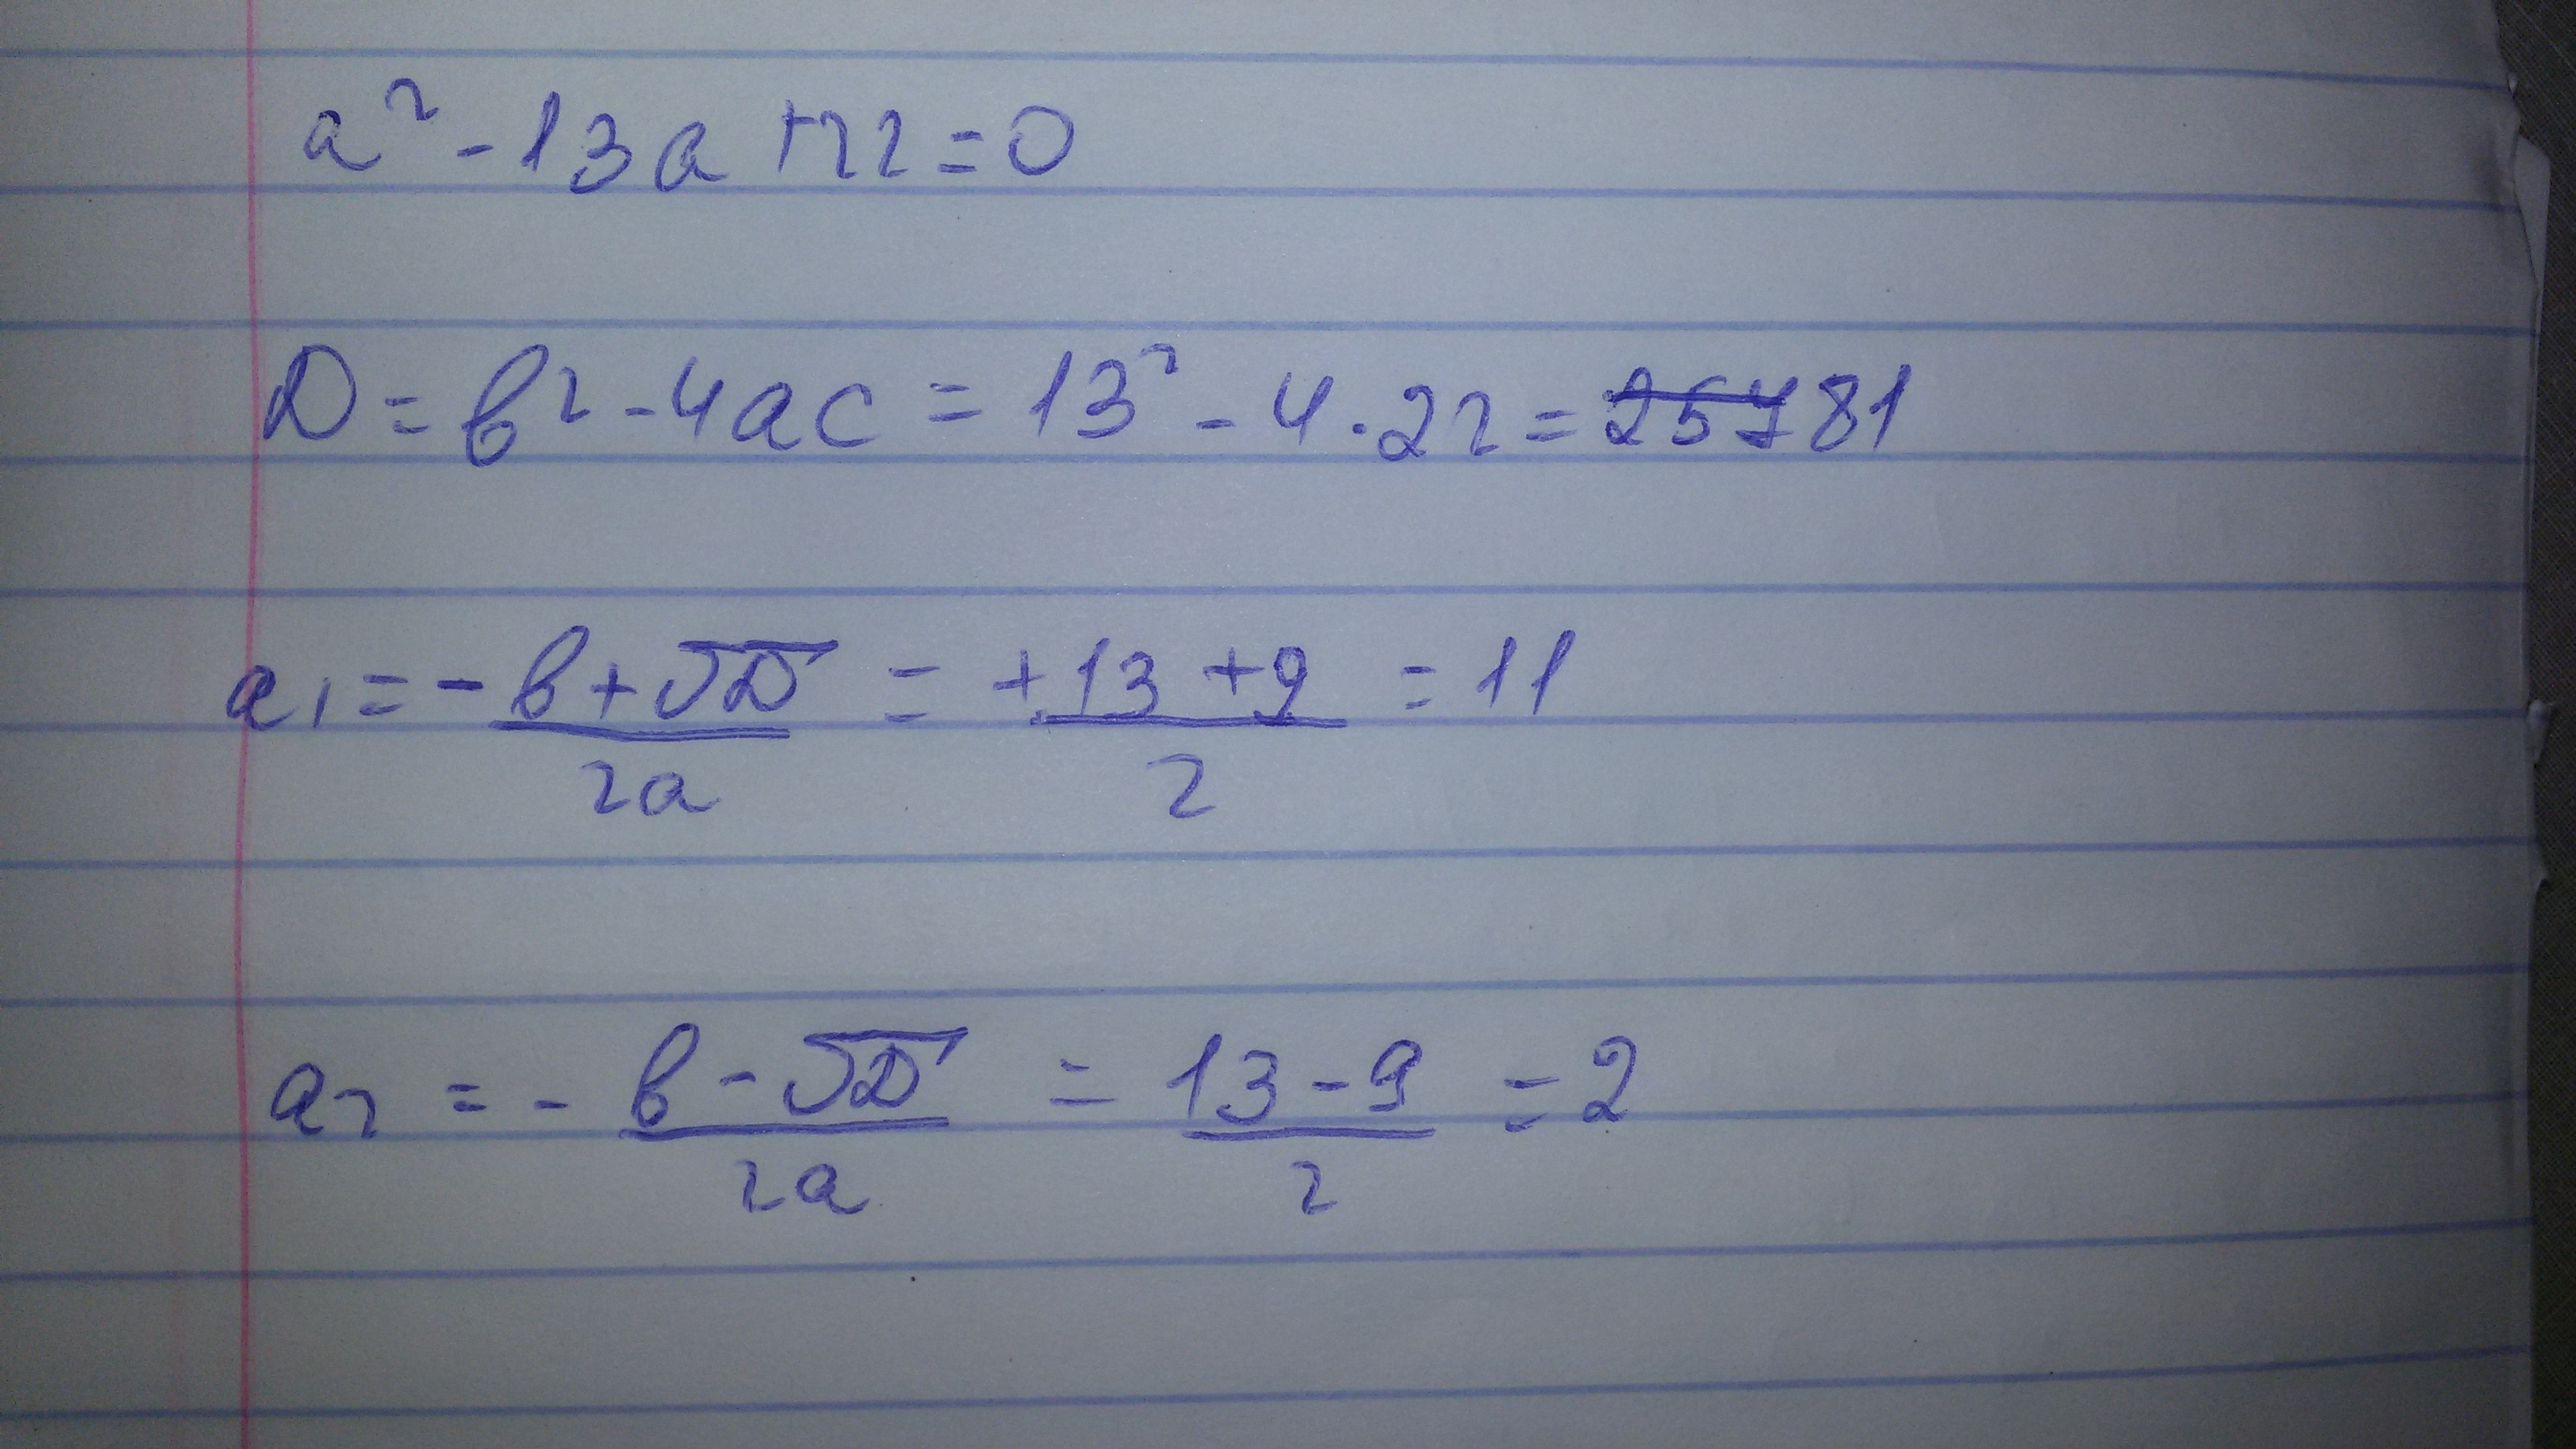 a² - 13a + 22 = 0
D = в² - 4ac = 13² - 4 · 22 = 81
a₁ = - в + √D / 2a = + 13 + 9 / 2 = 11
a₂ = - в - √D / 2a = 13 - 9 / 2 = 2